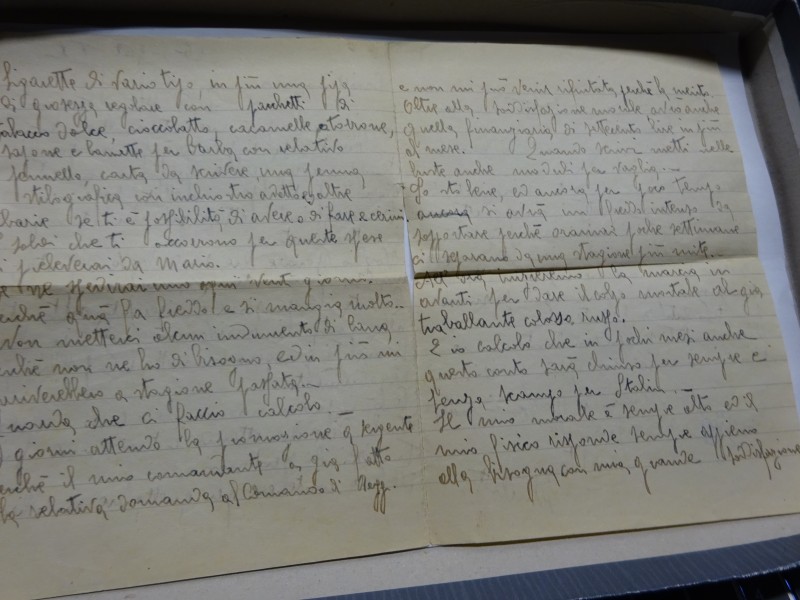 Sigarette di vario tipo, in più una pipa
di grosezza regolare con pachetti di
tabacco dolce, cioccolatto, caramelle, atorrone,
sapone e lamette per barba con relativo
pennello, carta da scrivere, una penna
stilografica con inchiostro adatto, altre
barie se ti è possibilità di avere o di fare e cerini.
I soldi che ti occorrono per queste spese
li preleverai da Mario.
Me ne spedirai uno ogni venti giorni.
Perché quà fa freddo e si mangia molto..
Non metterci alcun indumento di lana
perché non ne ho di bisogno, ed in più mi
ariverebbero a stagione passata.-
Guarda che ci faccio calcolo. -
giorni attendo la promozione a sergente
perché il mio comandante a già fatto
la relativa domanda al Comando di Regg.
e non mi può venir rifiutata, perché la merito.
Oltre alla sodisfazione morale avrò anche
quella finanziaria di settecento lire in più
al mese. Quando scrivi metti nelle
buste anche moduli per vaglia. -
Io sto bene, ed ancora per poco tempo
si avrà un freddo intenso da
sopportare perché oramai poche settimane
ci separano da una stagione più mite..
la marcia in
avanti per dare il colpo mortale al già
traballante colosso russo.
E io calcolo che in pochi mesi anche
questo conto sarà chiuso per sempre e
senza scampo per Stalin. -
Il mio morale è sempre alto ed il
mio fisico risponde sempre appieno
alla bisogna con mia grande sodisfazione